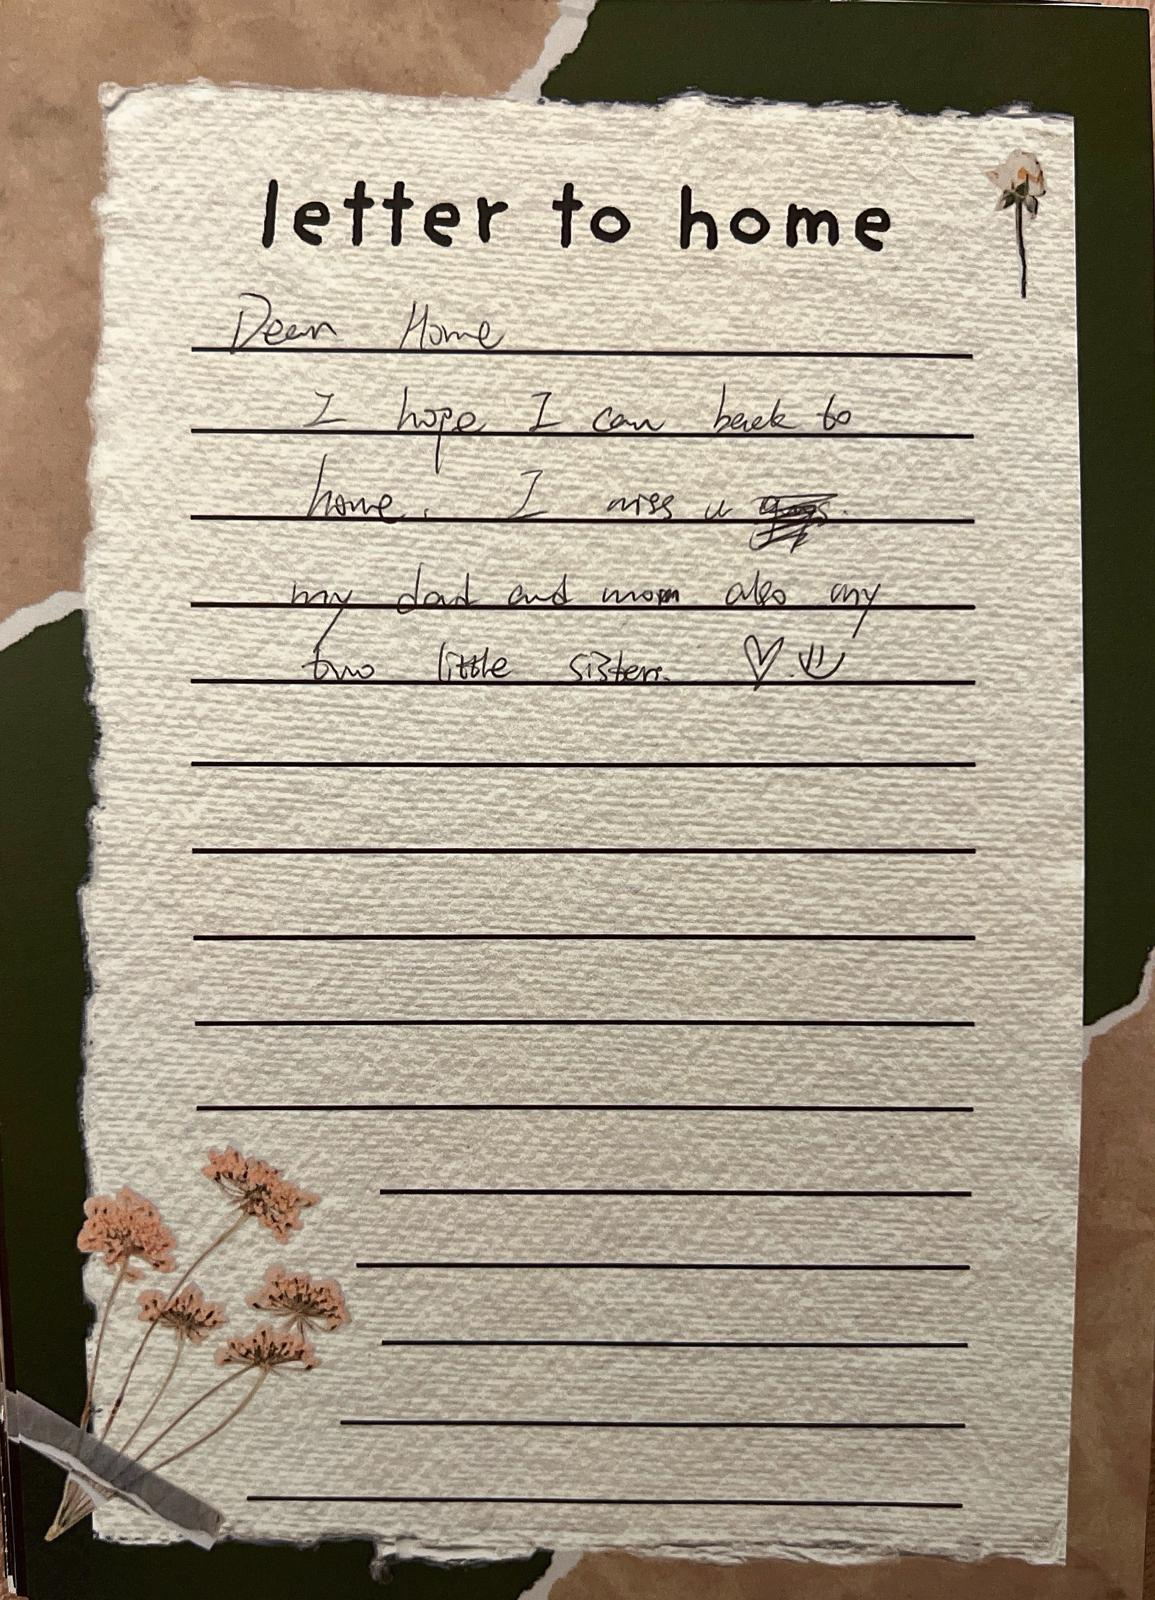 letter to home
Dear Home
I hope I can back to
home. I miss u
my dad and mom also my
two little sisters.